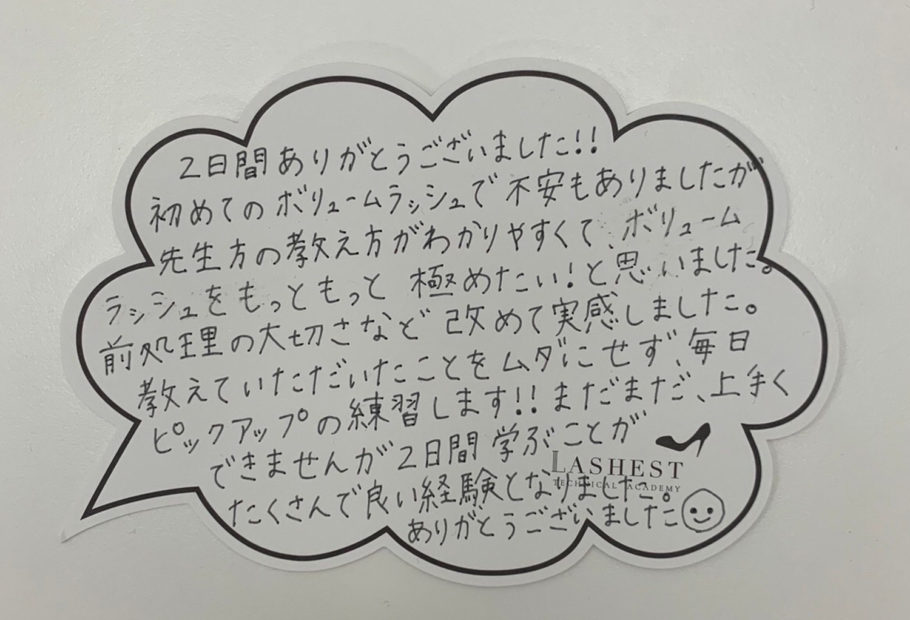 2日間ありがとうございました!!
初めてのボリュームラッシュで不安もありましたが
先生方の教え方がわかりやすくて、ボリューム
ラッシュをもっともっと極めたい!と思いました。
前処理の大切さなど改めて実感しました。
教えていただいたことをムダにせず、毎日
ピックアップの練習します!!まだまだ、上手く
できませんが2日間学ぶことが
LASHEST
TECHNICAL ACADEMY
たくさんで良い経験となりました。
ありがとうございました